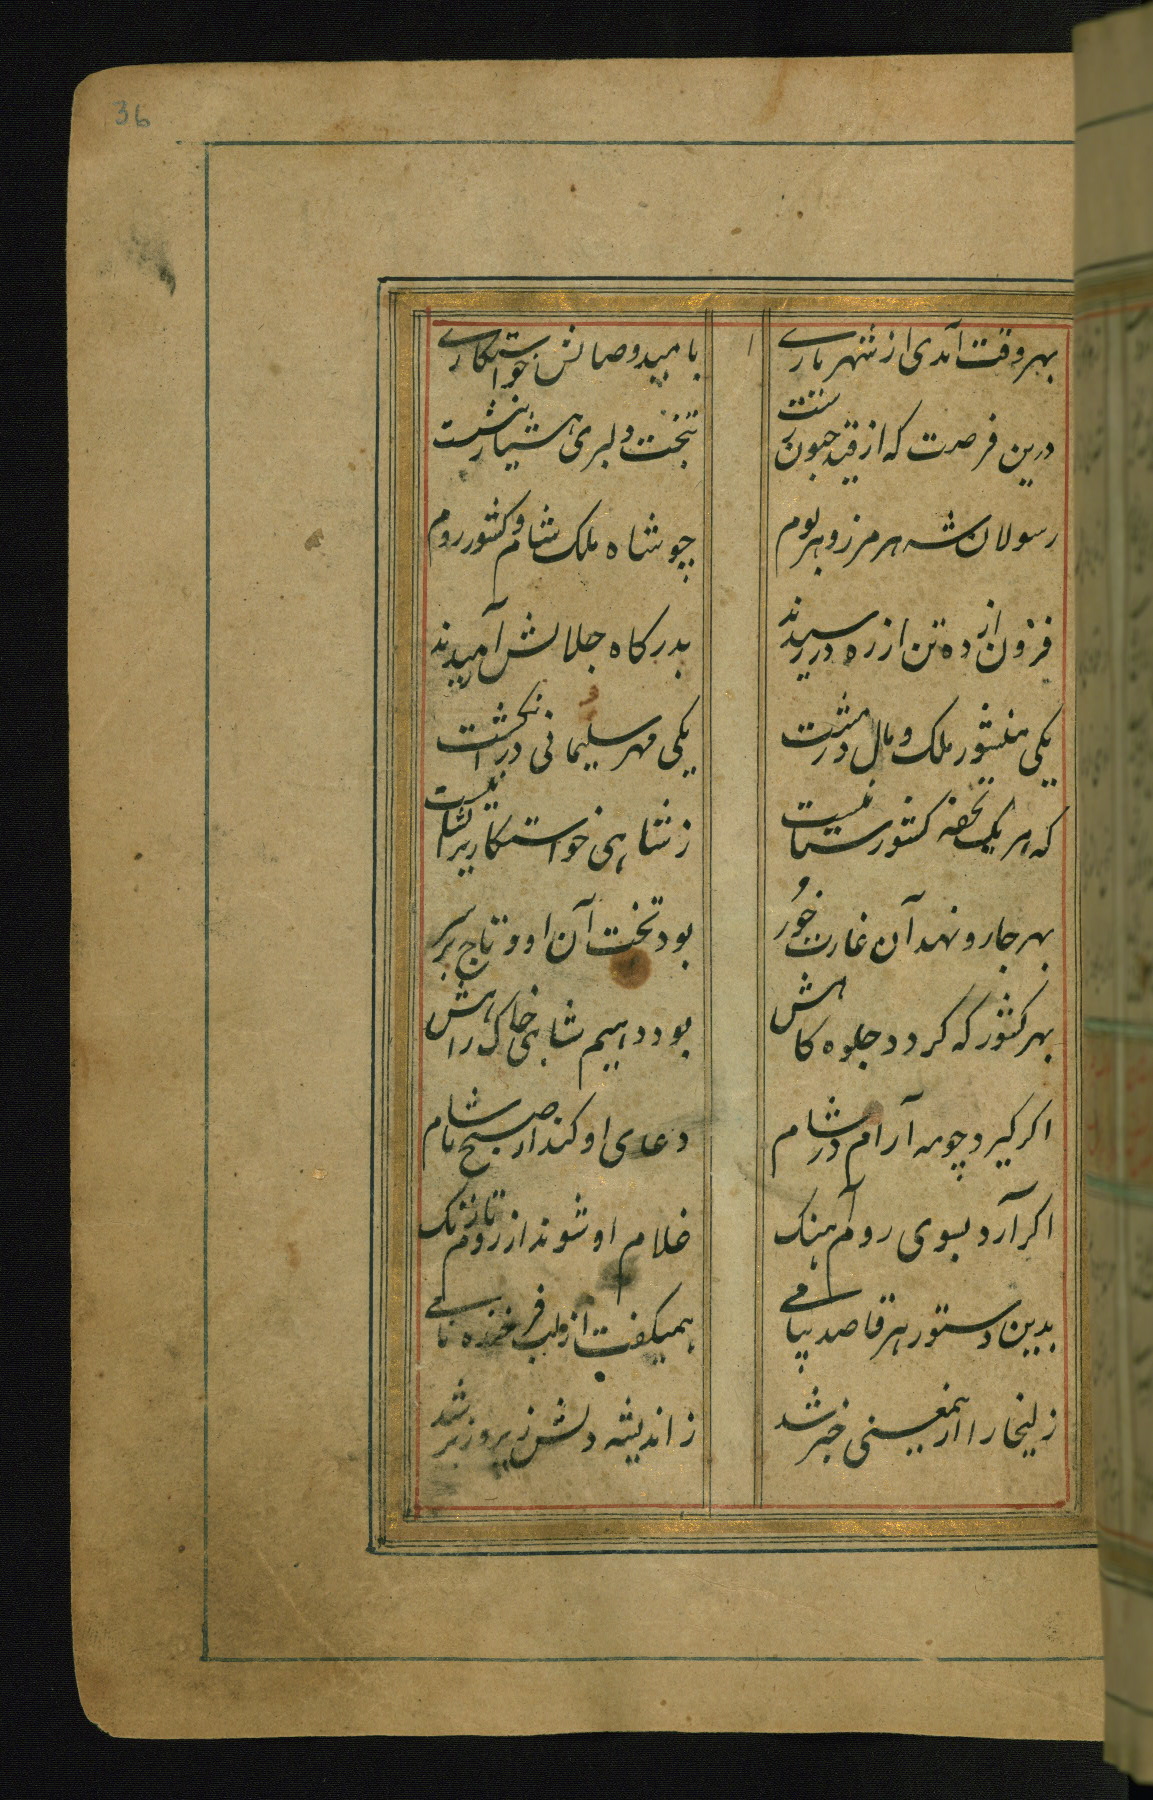 36
بهر وقت آمدی از شهریاری
بامید وصالش خواستکاری
درین فرصت که از قید جنون رست
بتخت دلبری هشیار بنشست
رسولان شه هر مرز و هر بوم
چو شاه ملک شام و کشور روم
فزون از ده تن از ره در رسیدند
بدرکاه جلالش آرمیدند
یکی منشور ملک و مال در مشت
یکی مهر سلیمانی در انکشت
که هر یک تحفه کشورستانیست
ز شاهی خواستکاریرا نشانیست
بهر جا رو نهد آن غارت خور
بود تخت آن او و تاج بر سر
بهر کشور که کردد جلوه کاهش
بود دیهیم شاهی خاک راهش
اکر کیرد چو مه آرام در شام
دعای او کنند از صبح تا شام
اکر آرد بسوی روم آهنک
غلام او شوند از روم تا زنک
بدین دستور هر قاصد پیامی
همیکفت از لب فرخنده نامی
زلیخا را ازین معنی خبر شد
ز اندیشه دلش زیر و زبر شد